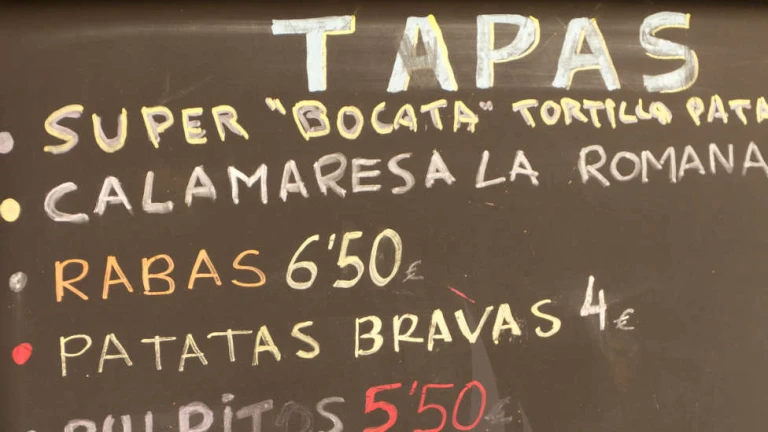 TAPAS
SUPER "BOCATA" TORTILLA PATA
CALAMARES A LA ROMANA
RABAS 6'50 €
PATATAS BRAVAS 4 €
PULPITOS 5'50 €